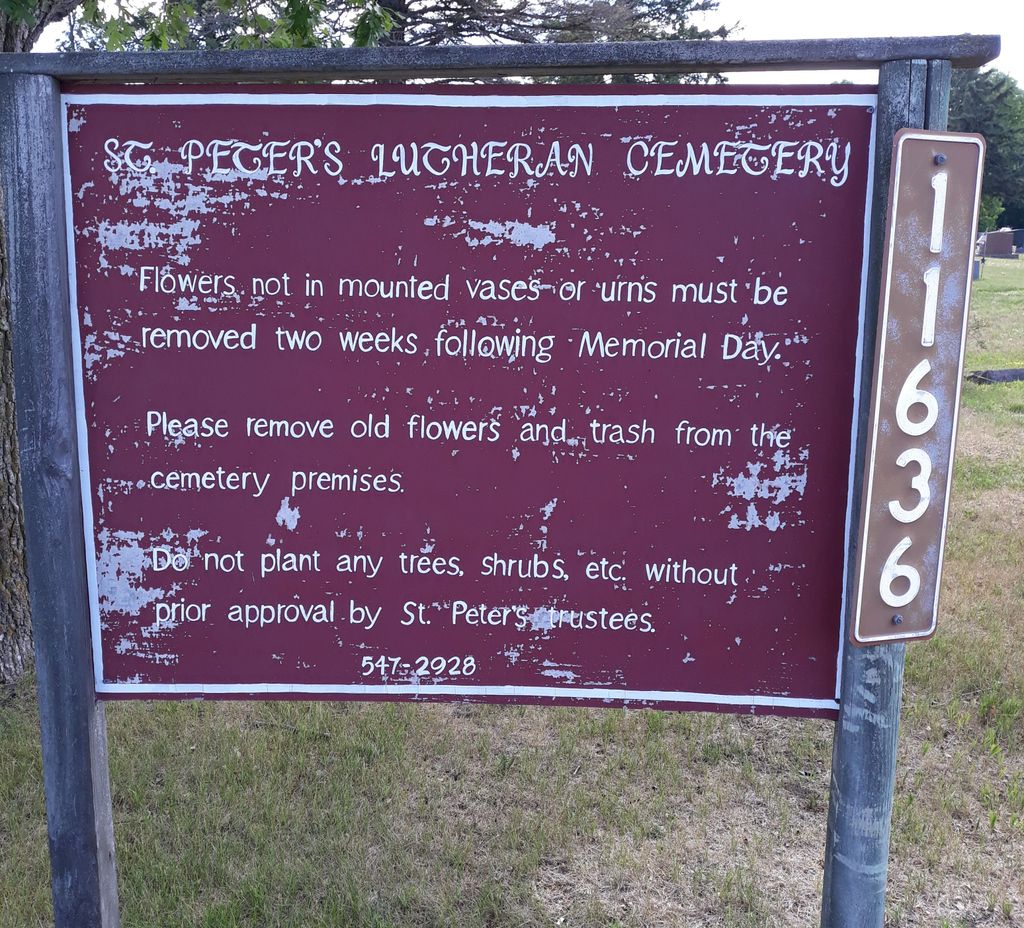 ST. PETER'S LUTHERAN CEMETERY
Flowers not in mounted vases or urns must be
removed two weeks following Memorial Day.
Please remove old flowers and trash from the
cemetery premises.
Do not plant any trees, shrubs, etc. without
prior approval by St. Peter's trustees.
547-2928
11636